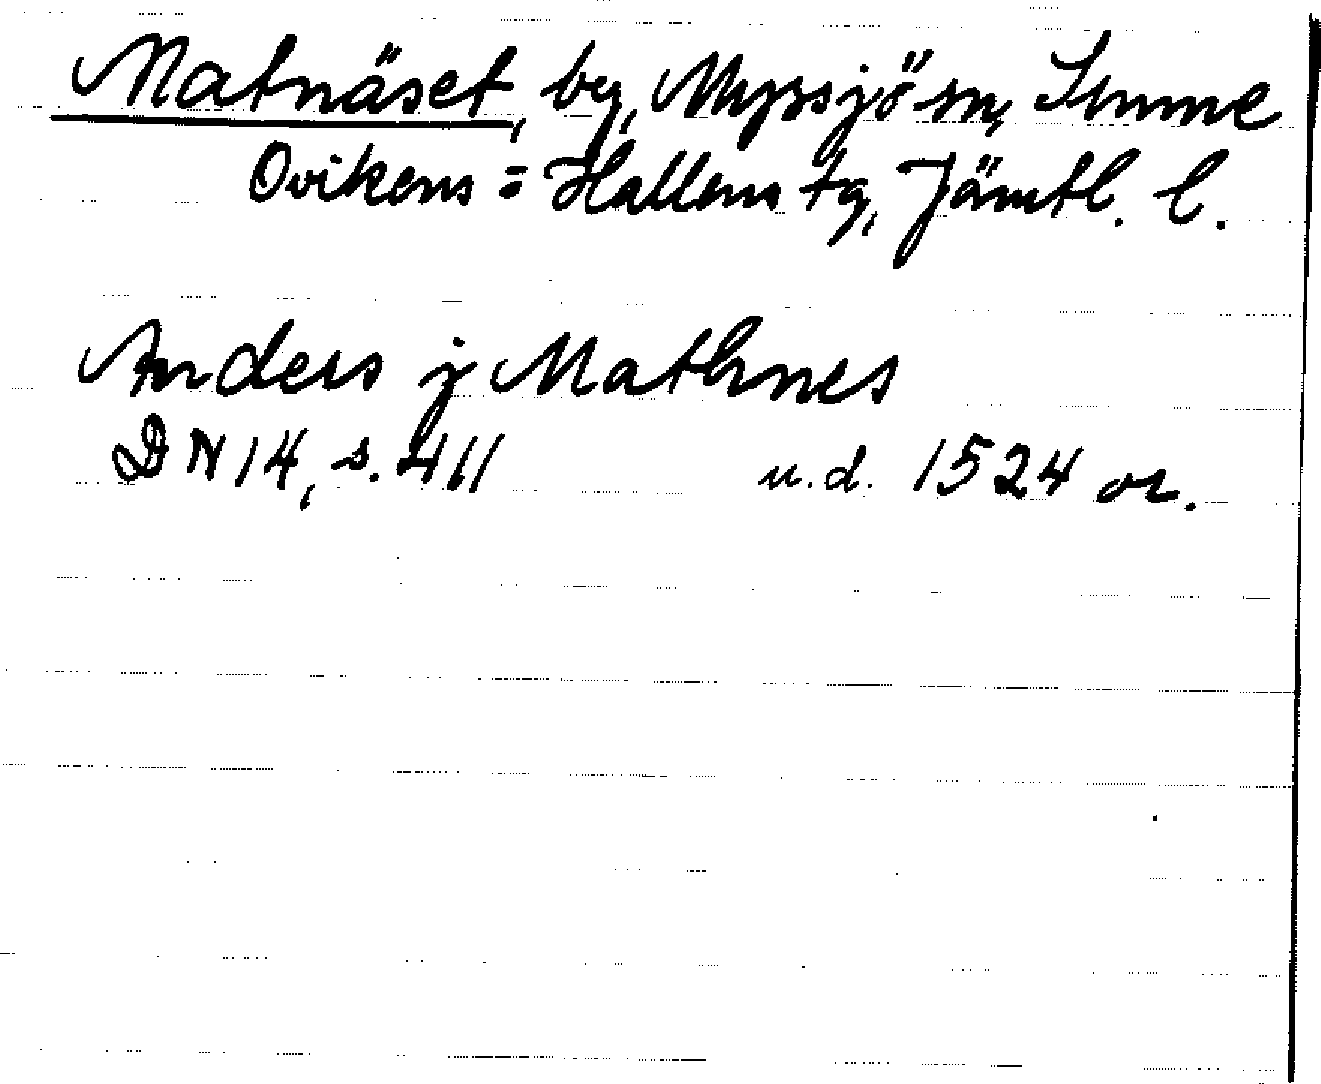 Matnäset, by, Myssjö sn, Sunne
Ovikens = Hallens tg, Jämtl. l.
Anders j Mathnes
DN 14, s. 411 u.d. 1524 or.